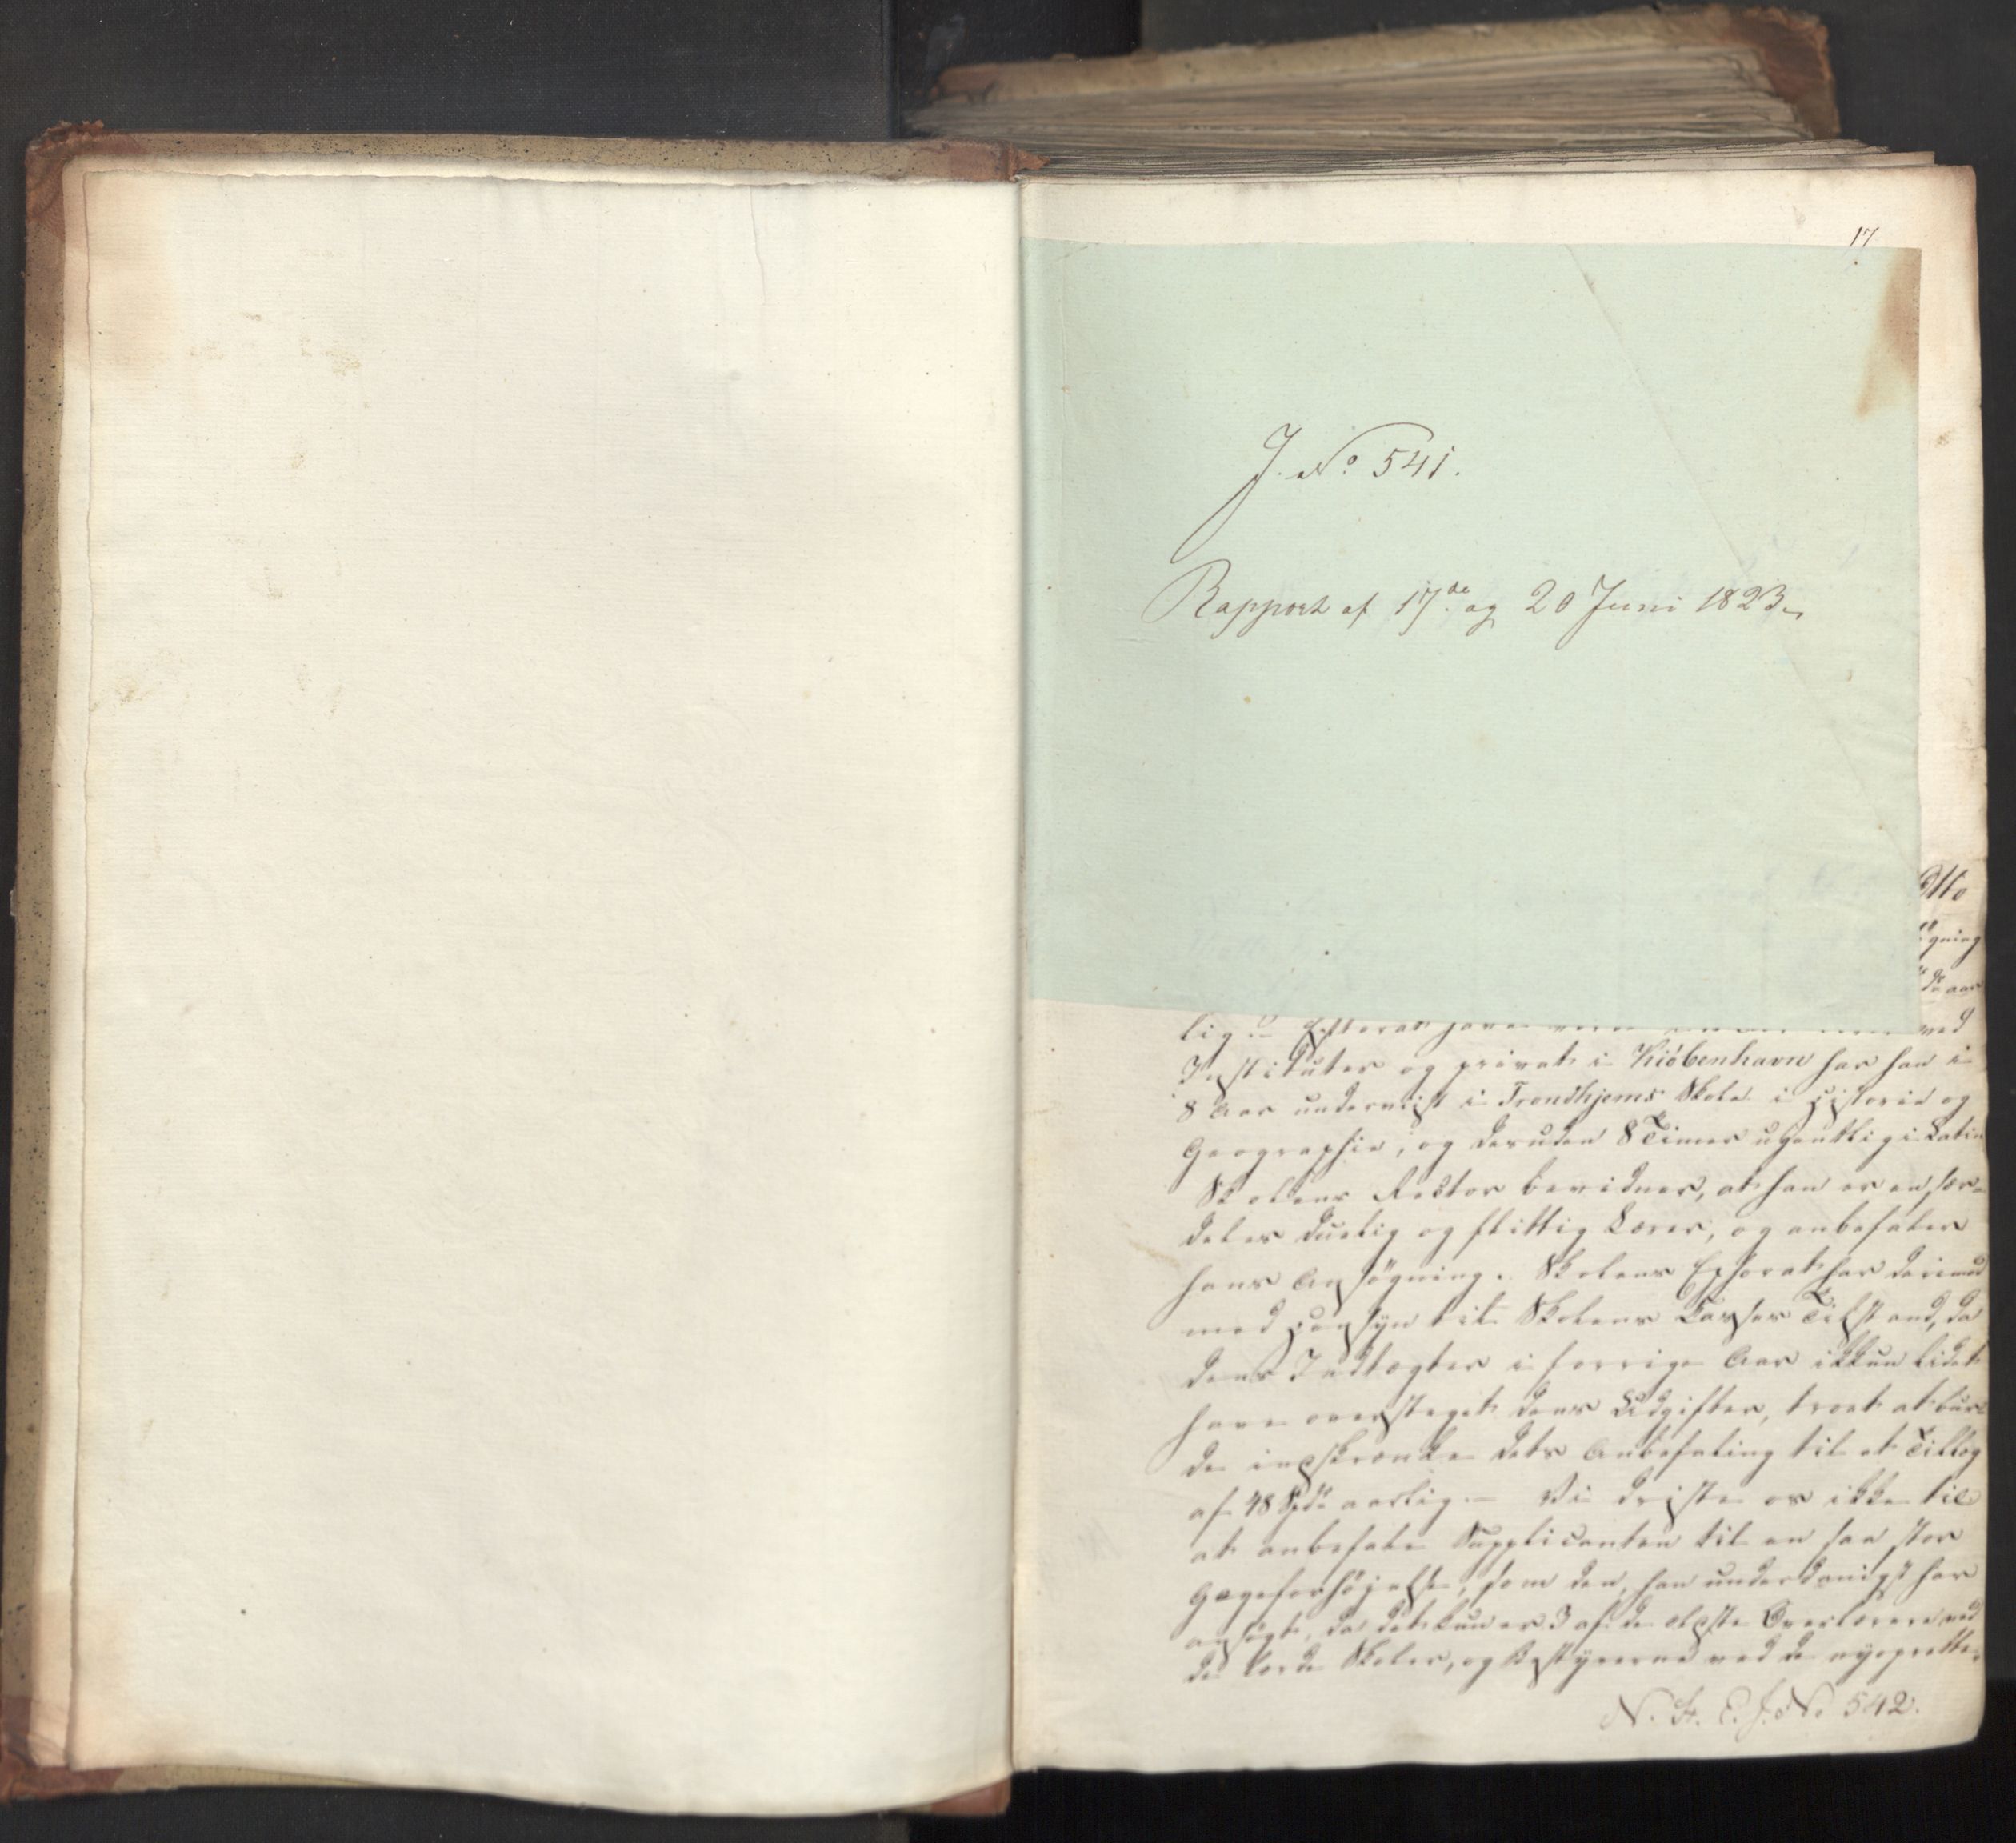 17
J. No 541.
Rapport af 17de og 20 Juni 1823
Otto
gning
aar
lig. Efterat have ved
Instituter og privat i Kiöbenhavn har han i
8 Aar underviist i Trondhjems Skole i Historie og
Geographie, og desuden 8 Timer ugentlig i Latin
Skolens Rector bevidner, at han er en sær-
deles duelig og flittig Lærer, og anbefaler
hans Ansøgning. Skolens Ephorat har derimod
med Hensyn til Skolens Casses Tilstand, da
dens Indtægter i forrige Aar ikkun lidet
have oversteget dens Udgifter, troet at bur-
de indskrænke dets Anbefaling til et Tillæg
af 48 Spd aarlig. — Vi driste os ikke til
at anbefale Supplicanten til en saa stor
Gageforhøjelse, som den, han underdanigst har
ansøgt, da det kun er 3 af de ælste Overlærere ved
de lærde Skoler, og Bestyrerne ved de nyoprette-
N. St. E. J. No 542.